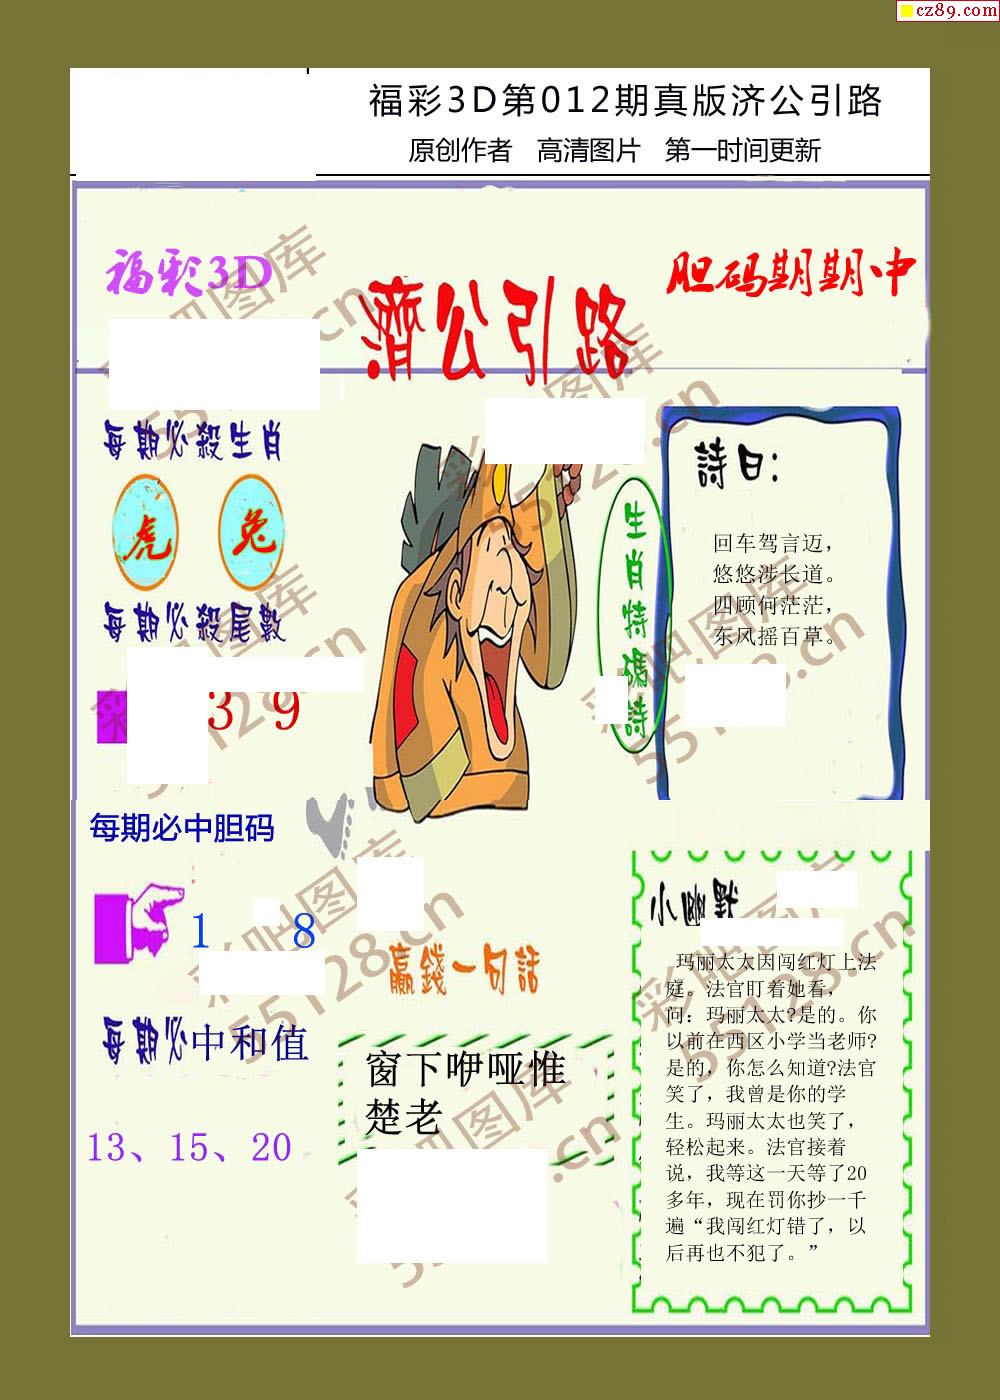 cz89.com
福彩3D第012期真版济公引路
原创作者 高清图片 第一时间更新
福彩3D
濟公引路
胆码期期中
每期必殺生肖
虎 兔
每期必殺尾數
3 9
每期必中胆码
1 8
每期必中和值
13、15、20
生肖特碼詩
詩曰：
回车驾言迈，
悠悠涉长道。
四顾何茫茫，
东风摇百草。
贏錢一句話
窗下咿哑惟
楚老
小幽默
玛丽太太因闯红灯上法
庭。法官盯着她看，
问：玛丽太太?是的。你
以前在西区小学当老师?
是的，你怎么知道?法官
笑了，我曾是你的学
生。玛丽太太也笑了，
轻松起来。法官接着
说，我等这一天等了20
多年，现在罚你抄一千
遍“我闯红灯错了，以
后再也不犯了。”
彩吧图库
55128.cn
彩吧图库
55128.cn
彩吧图库
55128.cn
彩吧图库
55128.cn
彩吧图库
55128.cn
彩吧图库
55128.cn
彩吧图库
55128.cn